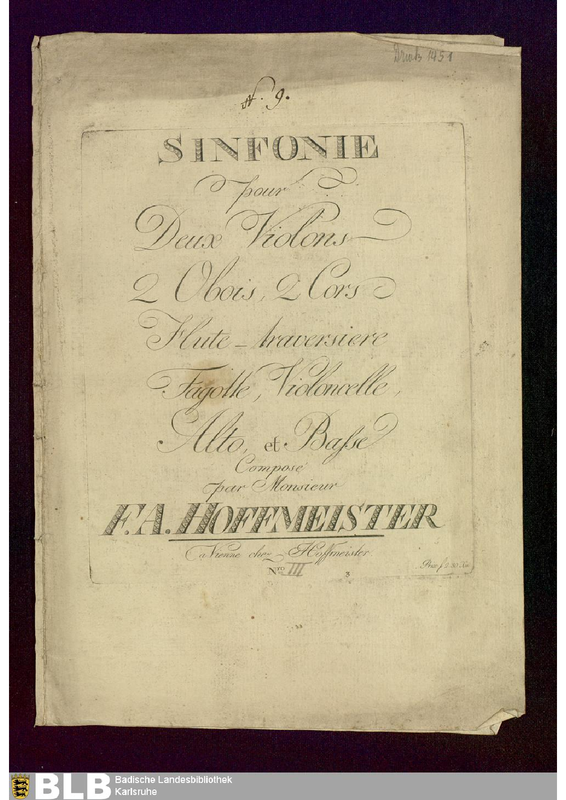 Druck 1451
N. 9.
SINFONIE
pour
Deux Violons
2 Obois, 2 Cors
Flute-traversiere
Fagotte, Violoncelle,
Alto, et Basse
Composé
par Monsieur
F. A. HOFFMEISTER
a Vienne chez Hoffmeister
Nro III 3
BLB Badische Landesbibliothek
Karlsruhe